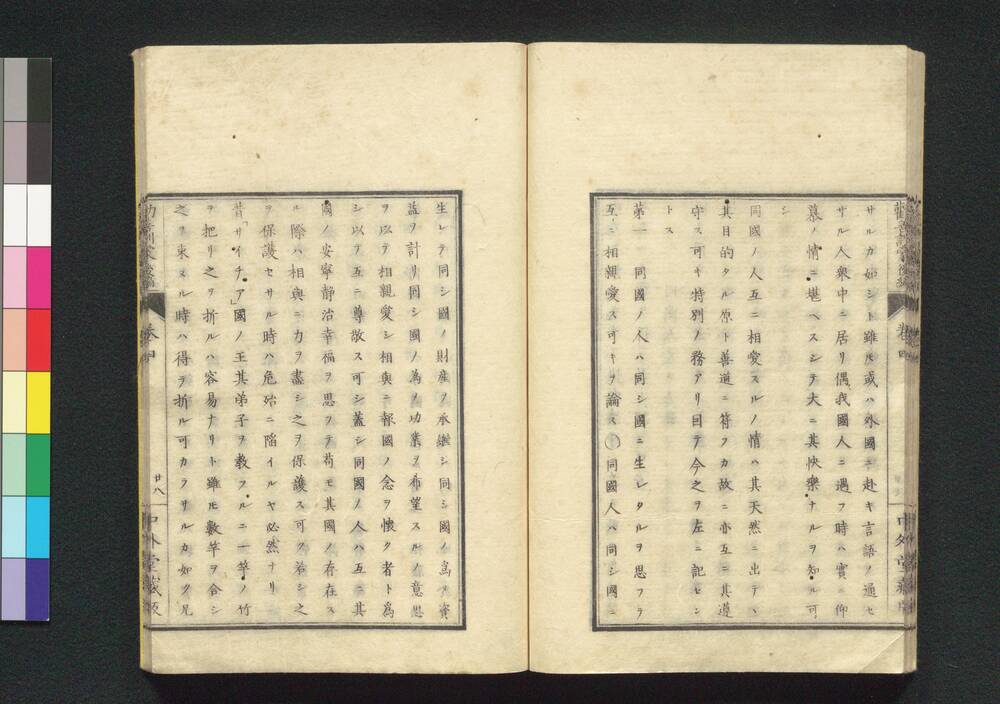 サルカ如シト雖𪜈或ハ外國ニ赴キ言語ノ通セ
サル人衆中ニ居リ偶我國人ニ遇フ時ハ實ニ仰
慕ノ情ニ堪ヘスシテ大ニ其快樂ナルヲ知ル可
シ
同國ノ人互ニ相愛スルノ情ハ其天然ニ出テヽ
其目的タル原ト善道ニ符フカ故ニ亦互ニ其遵
守ス可キ特別ノ務アリ因テ今之ヲ左ニ記セン
トス
第一 同國ノ人ハ同シ國ニ生レタルヲ思フテ
互ニ相親愛ス可キヲ論ス〇同國人ハ同シ國ニ
生レテ同シ國ノ財産ヲ承繼シ同シ國ノ爲メ實
益ヲ計リ同シ國ノ為メ功業ヲ希望スルノ意思
ヲ以テ相親愛シ相與ニ報國ノ念ヲ懷ク者ト為
シ以テ互ニ尊敬ス可シ蓋シ同國ノ人ハ互ニ其
國ノ安寧静治幸福ヲ思フテ苟モ其國ノ存在ス
ル際ハ相與ニ力ヲ盡シ之ヲ保護ス可ク若シ之
ヲ保護セサル時ハ危殆ニ陥イルヤ必然ナリ
昔「サイチア」國ノ王其弟子ヲ教フルニ一竿ノ竹
ヲ把リ之ヲ折ルハ容易ナリト雖𪜈數竿ヲ合シ
之ヲ束スル時ハ得テ折ル可カラサルカ如ク兄
卷四
廿八
中外堂藏版